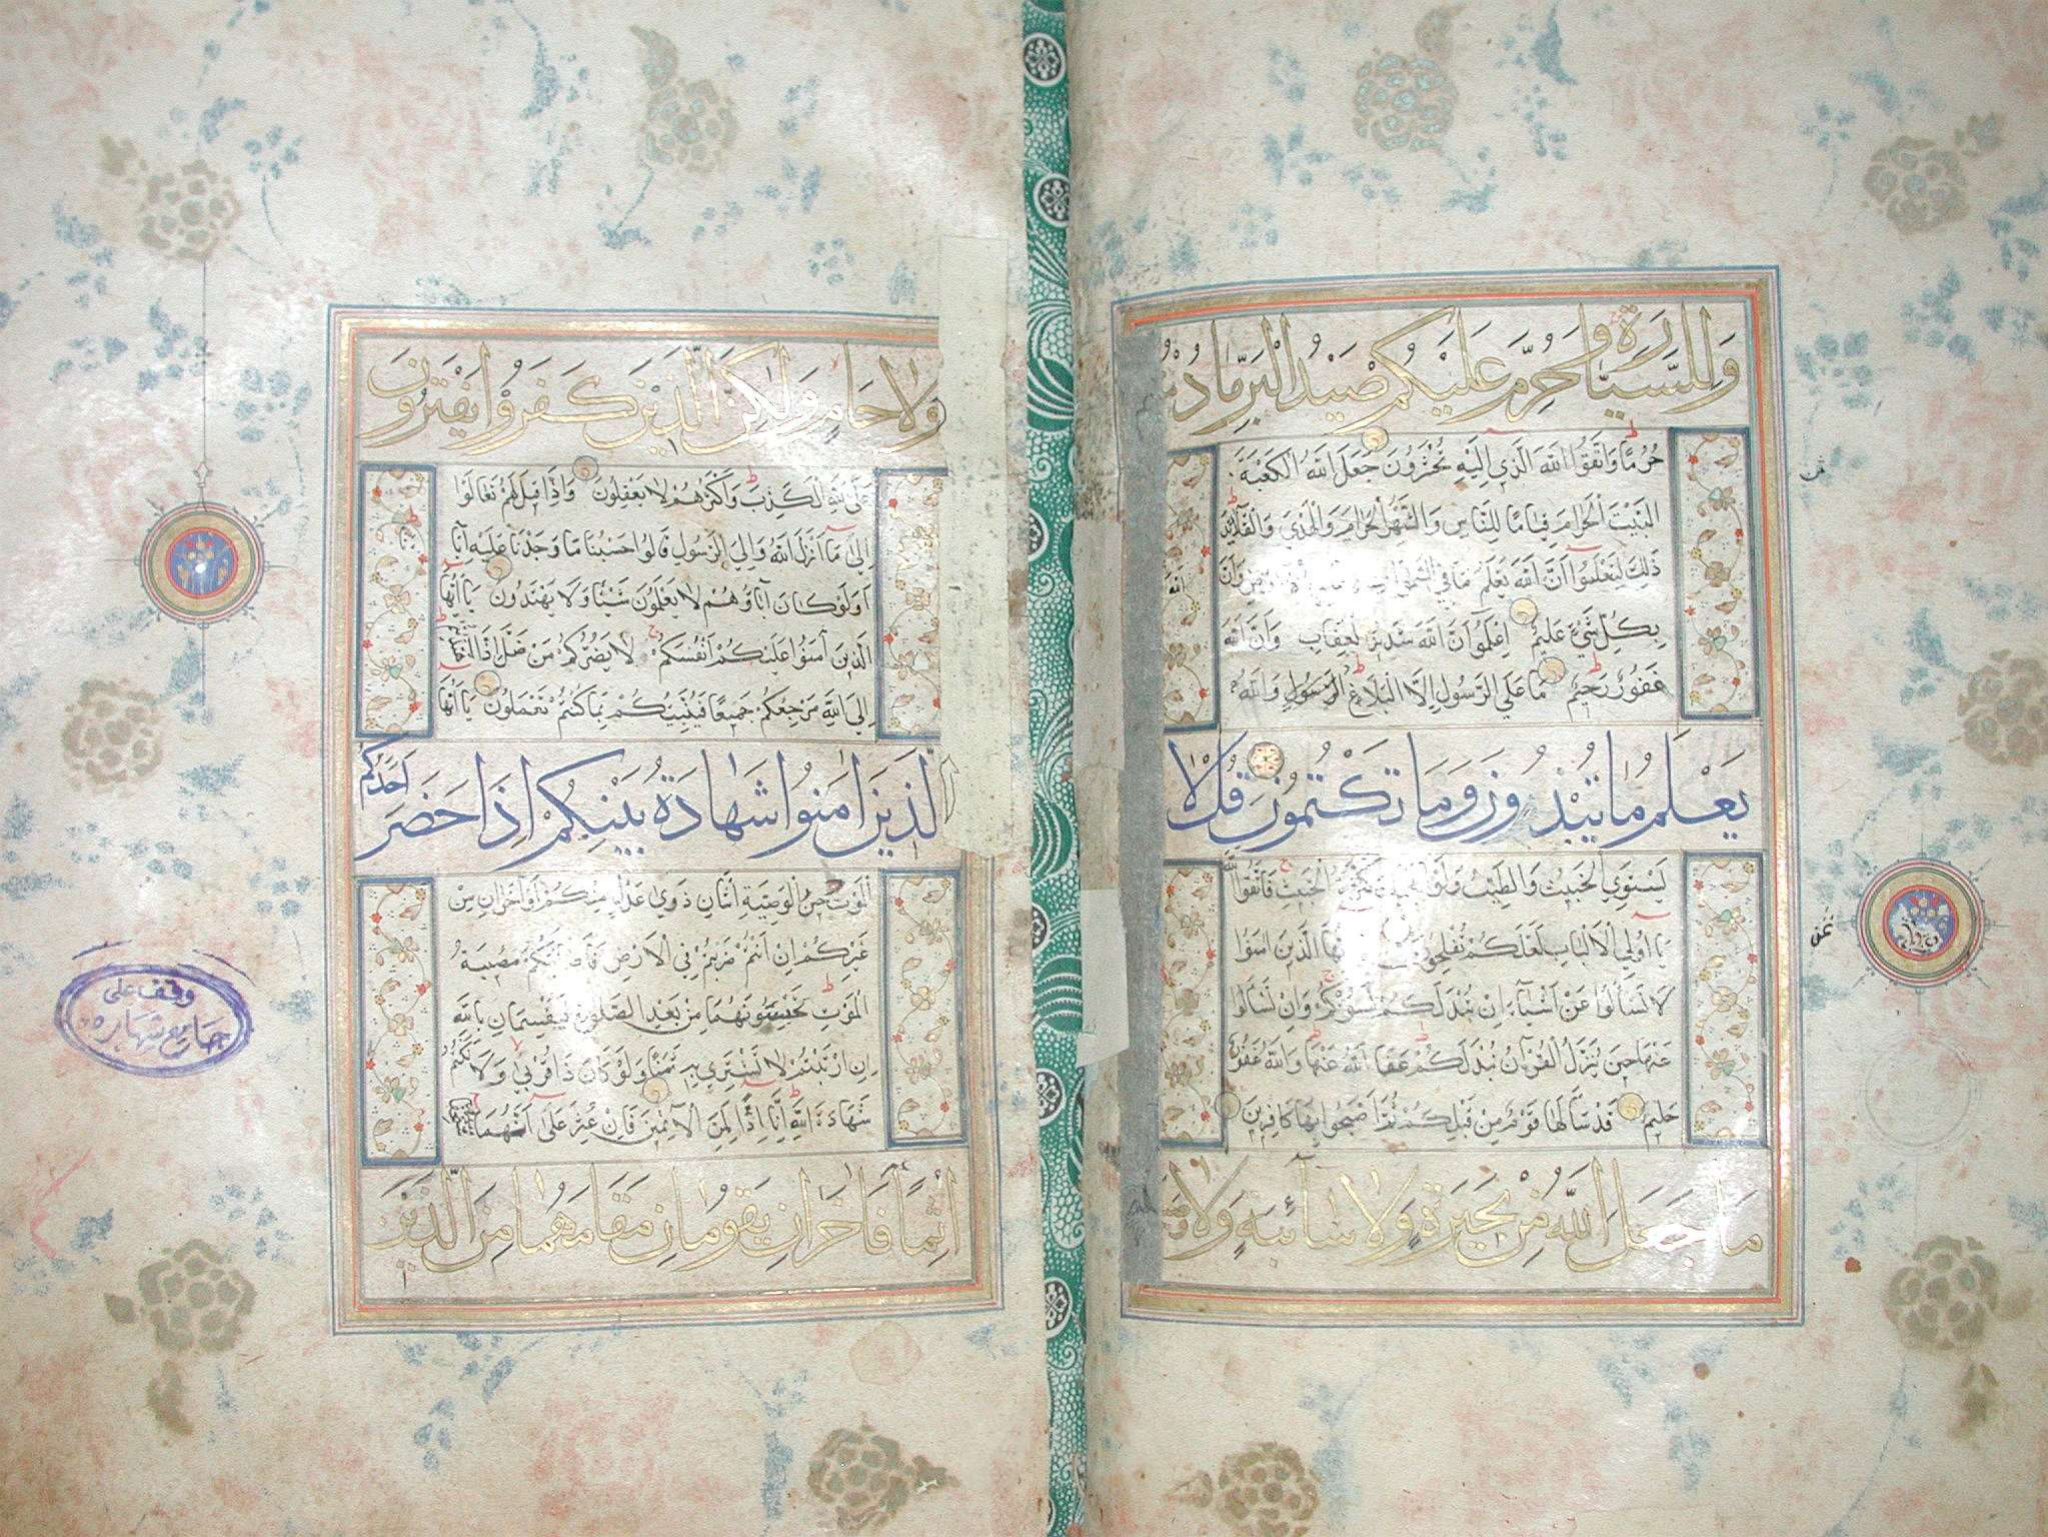 وَلِلسَّيَّارَةِ وَحُرِّمَ عَلَيْكُمْ صَيْدُ الْبَرِّ مَا دُمْتُمْ
حُرُمًا وَاتَّقُوا اللَّهَ الَّذِي إِلَيْهِ تُحْشَرُونَ جَعَلَ اللَّهُ الْكَعْبَةَ
الْبَيْتَ الْحَرَامَ قِيَامًا لِلنَّاسِ وَالشَّهْرَ الْحَرَامَ وَالْهَدْيَ وَالْقَلَائِدَ
ذَلِكَ لِتَعْلَمُوا أَنَّ اللَّهَ يَعْلَمُ مَا فِي السَّمَوَاتِ وَأَنَّ اللَّهَ
بِكُلِّ شَيْءٍ عَلِيمٌ اعْلَمُوا أَنَّ اللَّهَ شَدِيدُ الْعِقَابِ وَأَنَّ اللَّهَ
غَفُورٌ رَحِيمٌ مَا عَلَى الرَّسُولِ إِلَّا الْبَلَاغُ وَاللَّهُ
يَعْلَمُ مَا تُبْدُونَ وَمَا تَكْتُمُونَ قُلْ لَا
يَسْتَوِي الْخَبِيثُ وَالطَّيِّبُ وَلَوْ أَعْجَبَكَ كَثْرَةُ الْخَبِيثِ فَاتَّقُوا اللَّهَ
يَا أُولِي الْأَلْبَابِ لَعَلَّكُمْ تُفْلِحُونَ يَا أَيُّهَا الَّذِينَ آمَنُوا
لَا تَسْأَلُوا عَنْ أَشْيَاءَ إِنْ تُبْدَ لَكُمْ تَسُؤْكُمْ وَإِنْ تَسْأَلُوا
عَنْهَا حِينَ يُنَزَّلُ الْقُرْآنُ تُبْدَ لَكُمْ عَفَا اللَّهُ عَنْهَا وَاللَّهُ غَفُورٌ
حَلِيمٌ قَدْ سَأَلَهَا قَوْمٌ مِنْ قَبْلِكُمْ ثُمَّ أَصْبَحُوا بِهَا كَافِرِينَ
مَا جَعَلَ اللَّهُ مِنْ بَحِيرَةٍ وَلَا سَائِبَةٍ وَلَا
ثمن
ثمن
وَلَا حَامٍ وَلَكِنَّ الَّذِينَ كَفَرُوا يَفْتَرُونَ
عَلَى اللَّهِ الْكَذِبَ وَأَكْثَرُهُمْ لَا يَعْقِلُونَ وَإِذَا قِيلَ لَهُمْ تَعَالَوْا
إِلَى مَا أَنْزَلَ اللَّهُ وَإِلَى الرَّسُولِ قَالُوا حَسْبُنَا مَا وَجَدْنَا عَلَيْهِ آبَاءَنَا
أَوَلَوْ كَانَ آبَاؤُهُمْ لَا يَعْلَمُونَ شَيْئًا وَلَا يَهْتَدُونَ يَا أَيُّهَا
الَّذِينَ آمَنُوا عَلَيْكُمْ أَنْفُسَكُمْ لَا يَضُرُّكُمْ مَنْ ضَلَّ إِذَا اهْتَدَيْتُمْ
إِلَى اللَّهِ مَرْجِعُكُمْ جَمِيعًا فَيُنَبِّئُكُمْ بِمَا كُنْتُمْ تَعْمَلُونَ يَا أَيُّهَا
الَّذِينَ آمَنُوا شَهَادَةُ بَيْنِكُمْ إِذَا حَضَرَ أَحَدَكُمُ
الْمَوْتُ حِينَ الْوَصِيَّةِ اثْنَانِ ذَوَيْ عَدْلٍ مِنْكُمْ أَوْ آخَرَانِ مِنْ
غَيْرِكُمْ إِنْ أَنْتُمْ ضَرَبْتُمْ فِي الْأَرْضِ فَأَصَابَتْكُمْ مُصِيبَةُ
الْمَوْتِ تَحْبِسُونَهُمَا مِنْ بَعْدِ الصَّلَوةِ فَيُقْسِمَانِ بِاللَّهِ
إِنِ ارْتَبْتُمْ لَا نَشْتَرِي بِهِ ثَمَنًا وَلَوْ كَانَ ذَا قُرْبَى وَلَا نَكْتُمُ
شَهَادَةَ اللَّهِ إِنَّا إِذًا لَمِنَ الْآثِمِينَ فَإِنْ عُثِرَ عَلَى أَنَّهُمَا
إِثْمًا فَآخَرَانِ يَقُومَانِ مَقَامَهُمَا مِنَ الَّذِينَ
وقف على
جامع شهاره